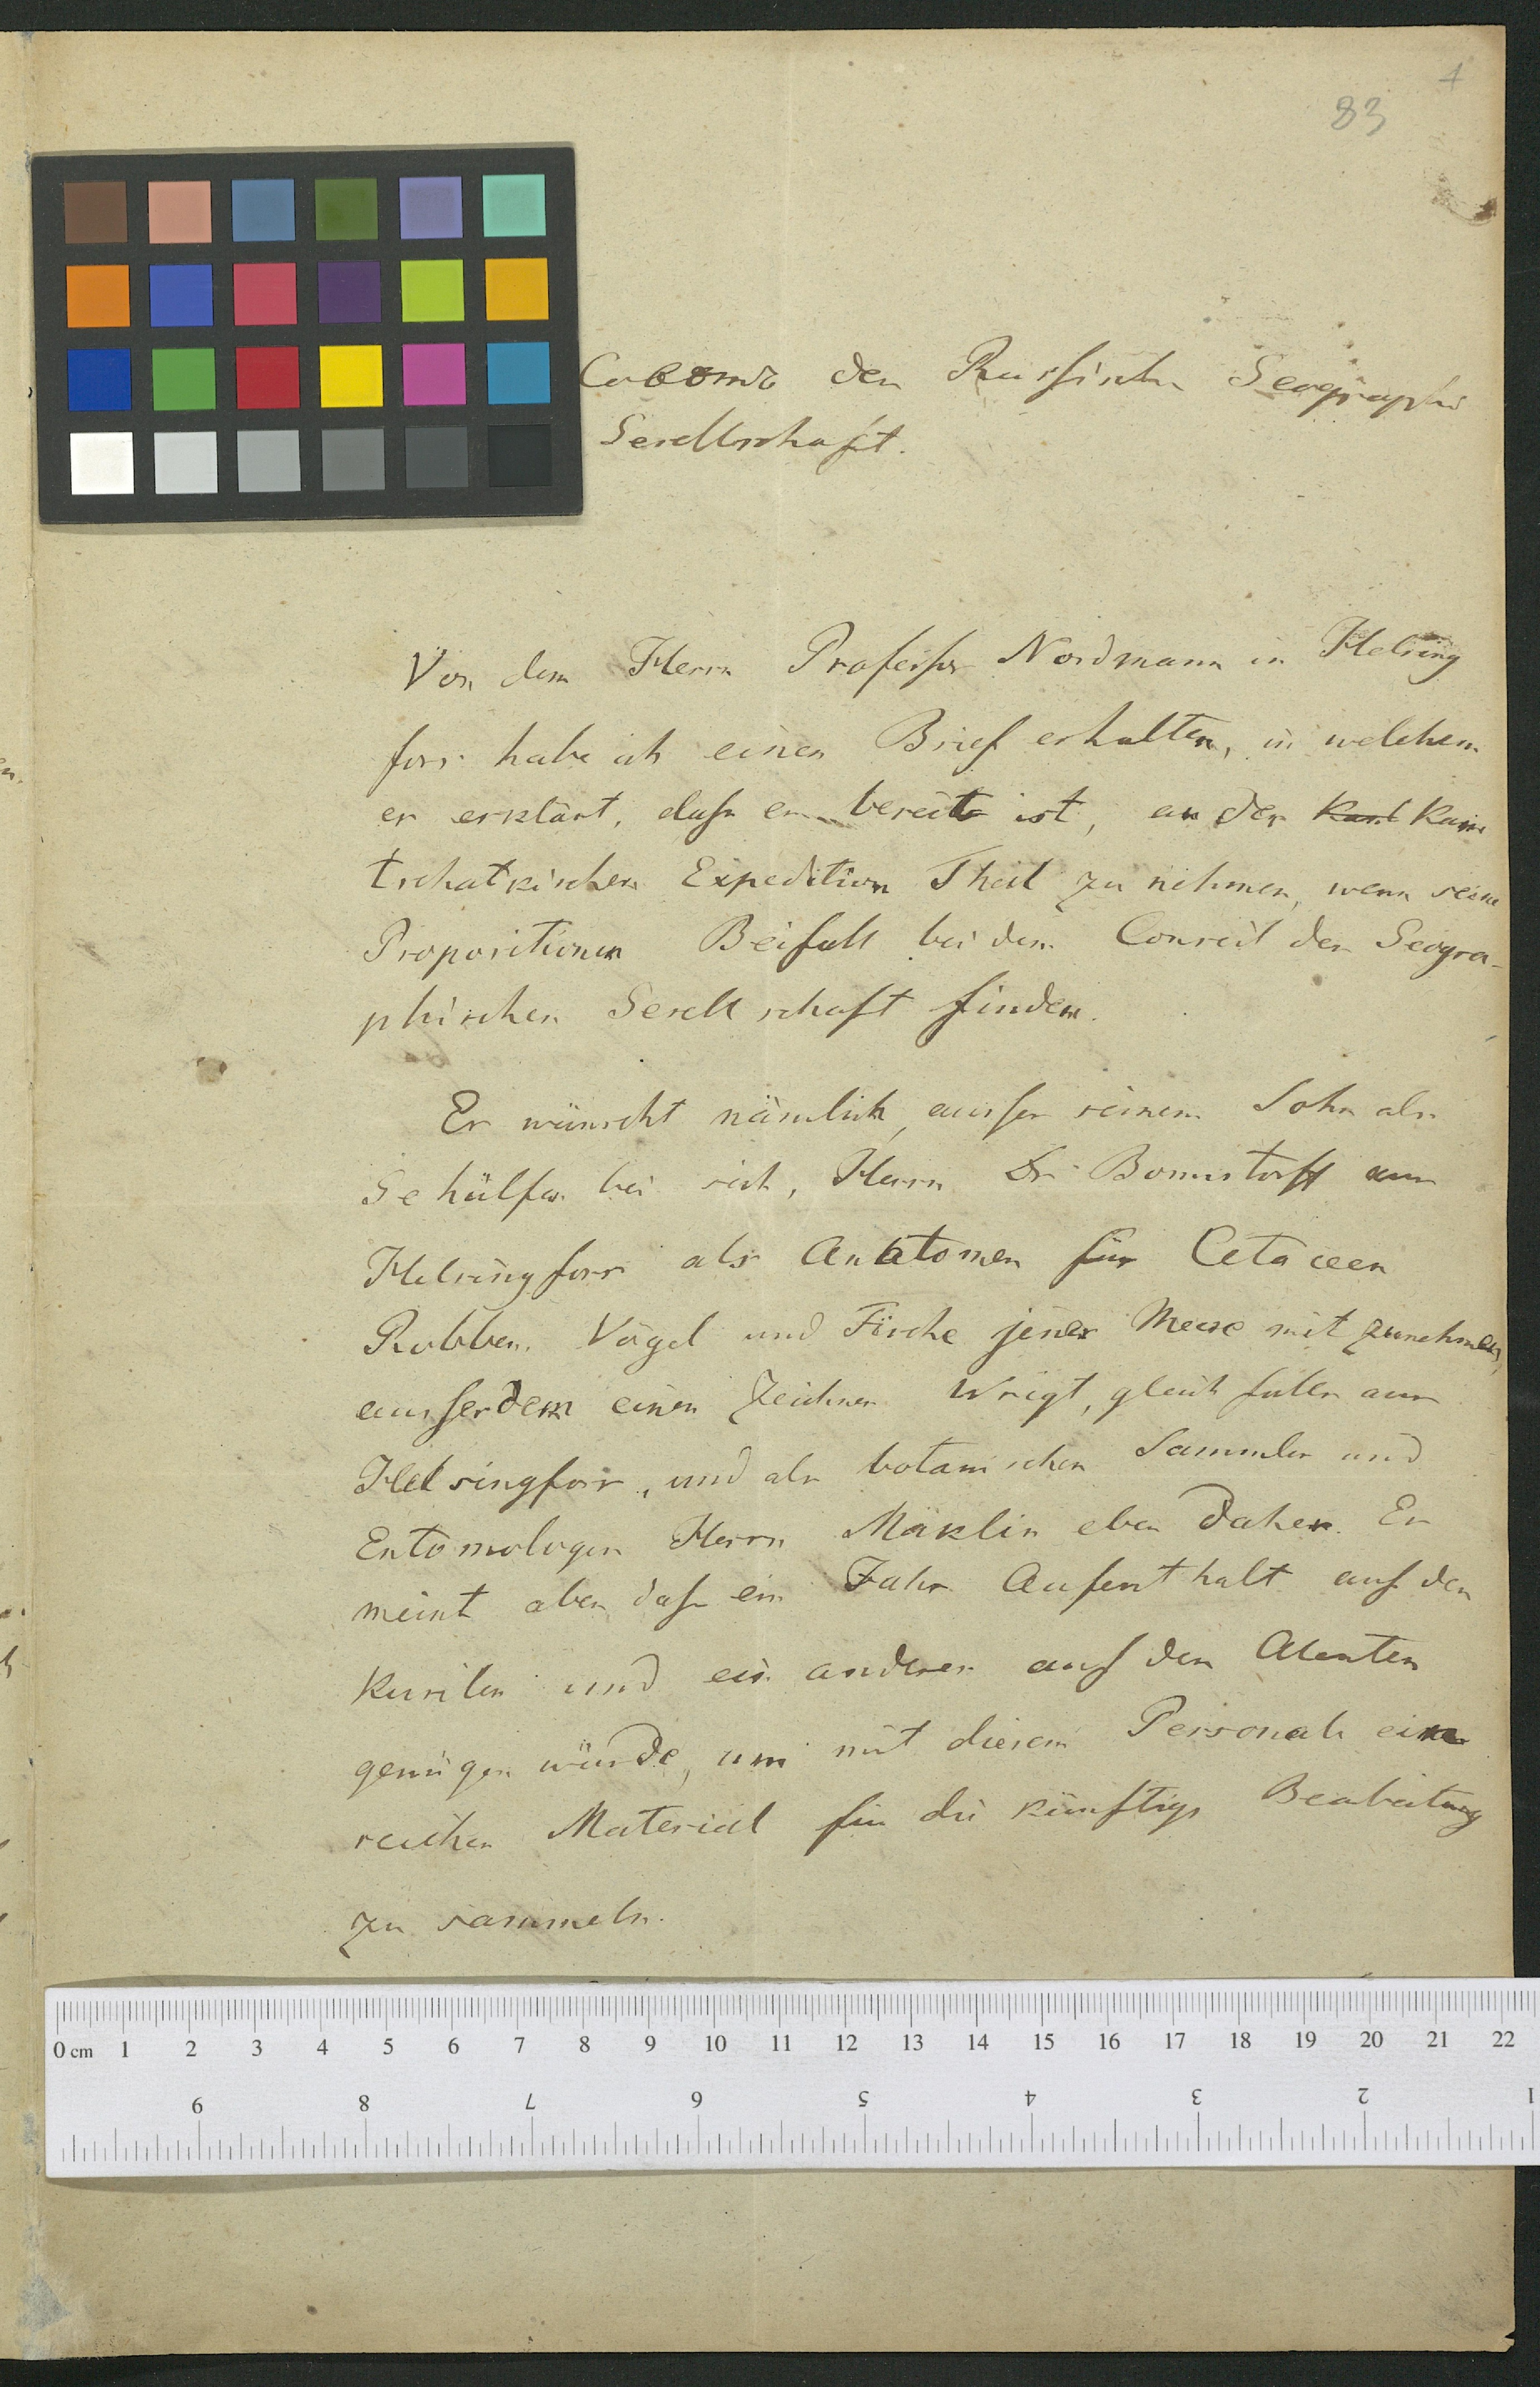 4
83
Совѣтъ der Russischen Geographi
Gesellschaft.
Von dem Herrn Professor Nordmann in Helsing
fors habe ich einen Brief erhalten, in welchem
er erklärt, dass er bereit ist, an der Kam
tschatkischen Expedition Theil zu nehmen, wenn seine
Propositionen Beifall bei dem Conseil der Geogra-
phischen Gesellschaft finden.
Er wünscht nämlich, ausser seinem Sohn als
Gehülfen bei sich, Herrn Dr Bonnsdorff aus
Helsingfors als Anatomen für Cetaceen
Robben, Vögel und Fische jener Meere mit zunehmen,
ausserdem einen Zeichner Wrigt, gleichfalls aus
Helsingfors, und als botanischen Sammler und
Entomologen Herrn Mäklin eben daher. Er
meint aber, dass ein Jahr Aufenthalt auf den
Kurilen und ein anderes auf den Aleuten
genügen würde, um mit diesem Personale ein
reiches Material für die künftige Bearbeitung
zu sammeln.
0 cm 1 2 3 4 5 6 7 8 9 10 11 12 13 14 15 16 17 18 19 20 21 22
9 8 7 6 5 4 3 2 1